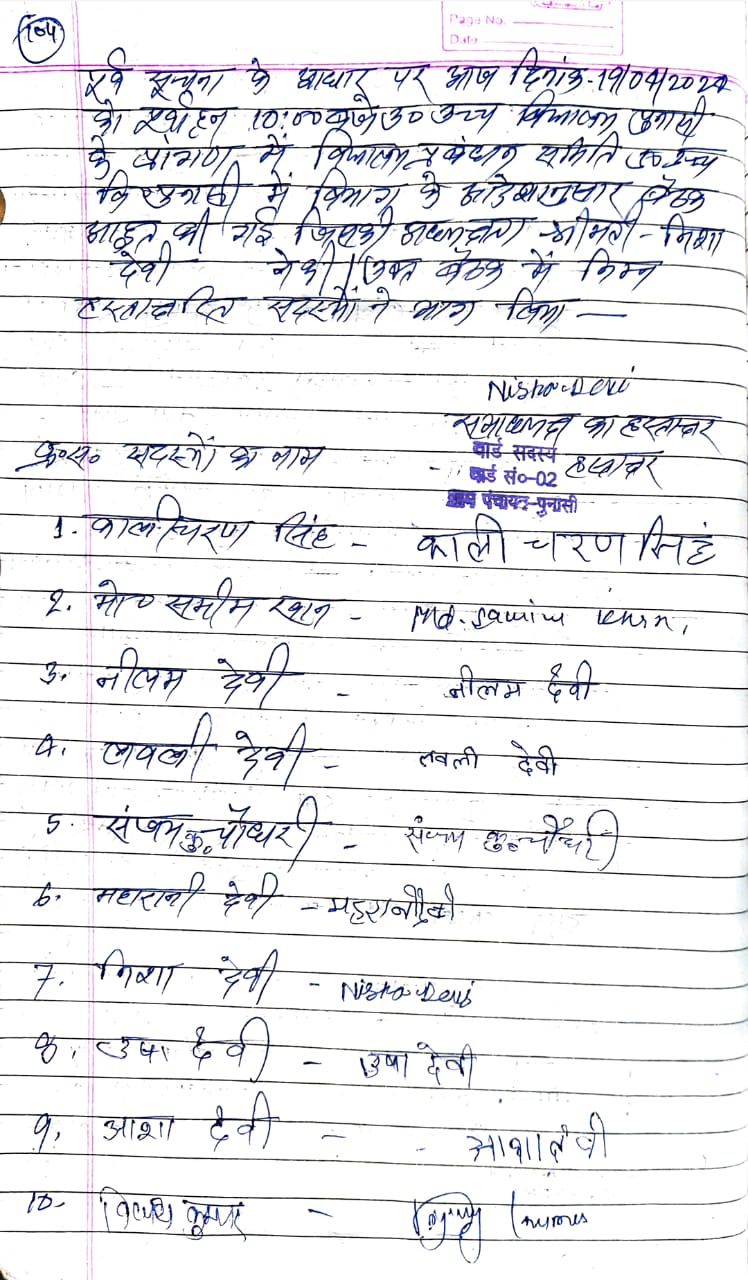 104
Page No.
Date
पूर्व सूचना के आधार पर आज दिनांक-19/04/2024
को पूर्वाहन 10:00 बजे उ० उच्च विद्यालय पुनासी
के प्रांगण में विद्यालय प्रबंधन समिति उ० उच्च
वि० पुनासी में विभाग के आदेशानुसार बैठक
आहूत की गई जिसकी अध्यक्षता श्रीमती-निशा
देवी ने की। उक्त बैठक में निम्न
हस्ताक्षरित सदस्यों ने भाग लिया —
Nisha Devi
सभाध्यक्ष का हस्ताक्षर
क्र०सं० सदस्यों के नाम - हस्ताक्षर
वार्ड सदस्य
वार्ड सं०-02
ग्राम पंचायत-पुनासी
1. कालीचरण सिंह - काली चरण सिहं
2. मो० समीम खान - Md. Samim Khan,
3. नीलम देवी - नीलम देवी
4. लवली देवी - लवली देवी
5. संजय कु० चौधरी - संजय कु० चौधरी
6. महारानी देवी - महरानी देवी
7. निशा देवी - Nisha Devi
8. उषा देवी - उषा देवी
9. आशा देवी - - आशा देवी
10- कुमार -